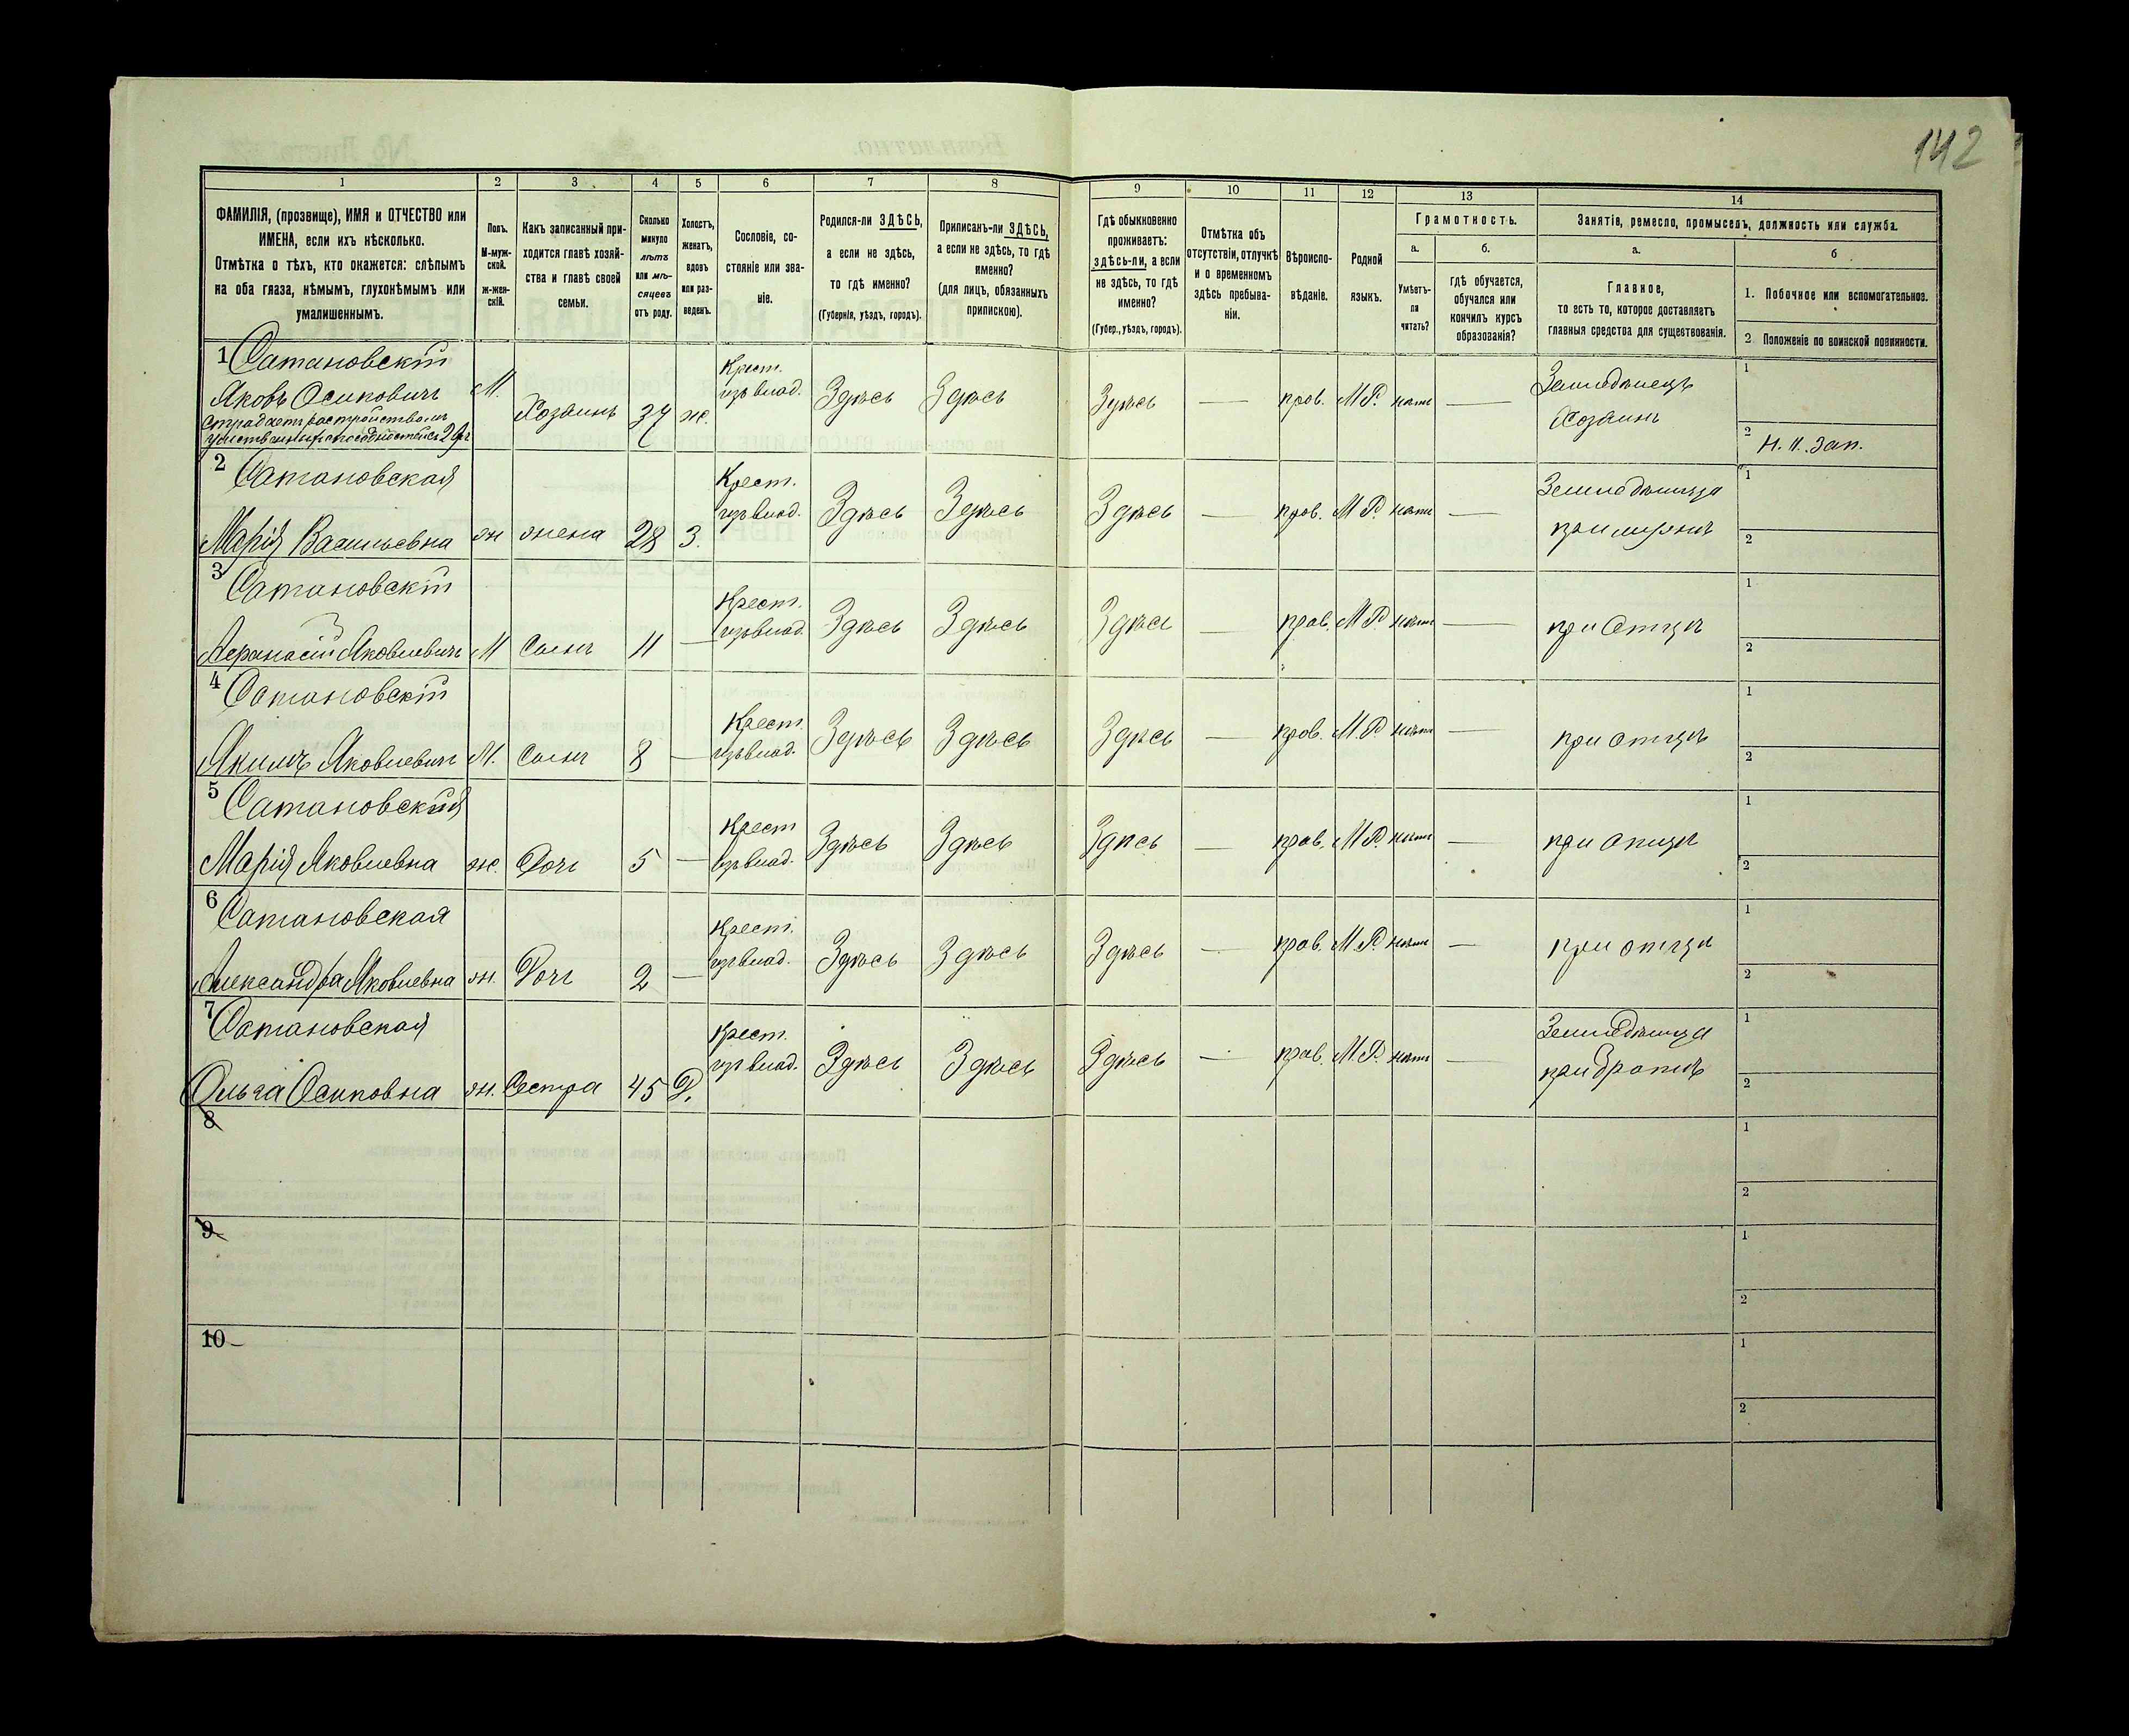 142
1 2 3 4 5 6 7 8 9 10 11 12 13 14
ФАМИЛІЯ, (прозвище), ИМЯ и ОТЧЕСТВО или
ИМЕНА, если ихъ нѣсколько.
Отмѣтка о тѣхъ, кто окажется: слѣпымъ
на оба глаза, нѣмымъ, глухонѣмымъ или
умалишеннымъ.
Полъ.
М-муж-
ской.
ж-жен-
скій.
Какъ записанный при-
ходится главѣ хозяй-
ства и главѣ своей
семьи.
Сколько
минуло
лѣтъ
или мѣ-
сяцевъ
отъ роду.
Холостъ,
женатъ,
вдовъ
или раз-
веденъ.
Сословіе, со-
стояніе или зва-
ніе.
Родился-ли ЗДѢСЬ,
а если не здѣсь,
то гдѣ именно?
(Губернія, уѣздъ, городъ).
Приписанъ-ли ЗДѢСЬ,
а если не здѣсь, то гдѣ
именно?
(для лицъ, обязанныхъ
припискою).
Гдѣ обыкновенно
проживаетъ:
здѣсь-ли, а если
не здѣсь, то гдѣ
именно?
(Губер., уѣздъ, городъ).
Отмѣтка объ
отсутствіи, отлучкѣ
и о временномъ
здѣсь пребыва-
ніи.
Вѣроиспо-
вѣданіе.
Родной
языкъ.
Грамотность.
а.
Умѣетъ-
ли
читать?
б.
гдѣ обучается,
обучался или
кончилъ курсъ
образованія?
Занятіе, ремесло, промыселъ, должность или служба.
а.
Главное,
то есть то, которое доставляетъ
главныя средства для существованія.
б
1. Побочное или вспомогательное.
2 Положеніе по воинской повинности.
1 Сатановскій
Яковъ Осиповичъ
страдаетъ растройствомъ
умственныхъ способностей
М. Хозяинъ 34 ж. Крест. изъ влад. Здѣсь Здѣсь Здѣсь — прав. М.Р. нѣтъ — Земледѣлецъ
Хозяинъ
1
2 Н. II. Зап.
2 Сатановская
Марія Васильевна жн жена 28 З. Крест. изъ влад. Здѣсь Здѣсь Здѣсь — прав. М.Р. нѣтъ — Земледѣлица
при мужѣ
1
2
3 Сатановскій
Афанасій Яковлевичъ М Сынъ 11 — Крест. изъ влад. Здѣсь Здѣсь Здѣсь — прав. М.Р. нѣтъ — при Отцѣ
1
2
4 Сатановскій
Якимъ Яковлевичъ М. Сынъ 8 — Крест. изъ влад. Здѣсь Здѣсь Здѣсь — прав. М.Р нѣтъ — при отцѣ
1
2
5 Сатановская
Марія Яковлевна ж. Дочь 5 — Крест изъ влад. Здѣсь Здѣсь Здѣсь — прав. М.Р. нѣтъ — при отцѣ
1
2
6 Сатановская
Александра Яковлевна жн. Дочь 2 — Крест. изъ влад. Здѣсь Здѣсь Здѣсь — прав. М.Р. нѣтъ — при отцѣ
1
2
7 Сатановская
Ольга Осиповна жн. Сестра 45 Д. Крест. изъ влад. Здѣсь Здѣсь Здѣсь — прав. М.Р. нѣтъ — Земледѣлица
при Братѣ
1
2
8
1
2
9
1
2
10
1
2